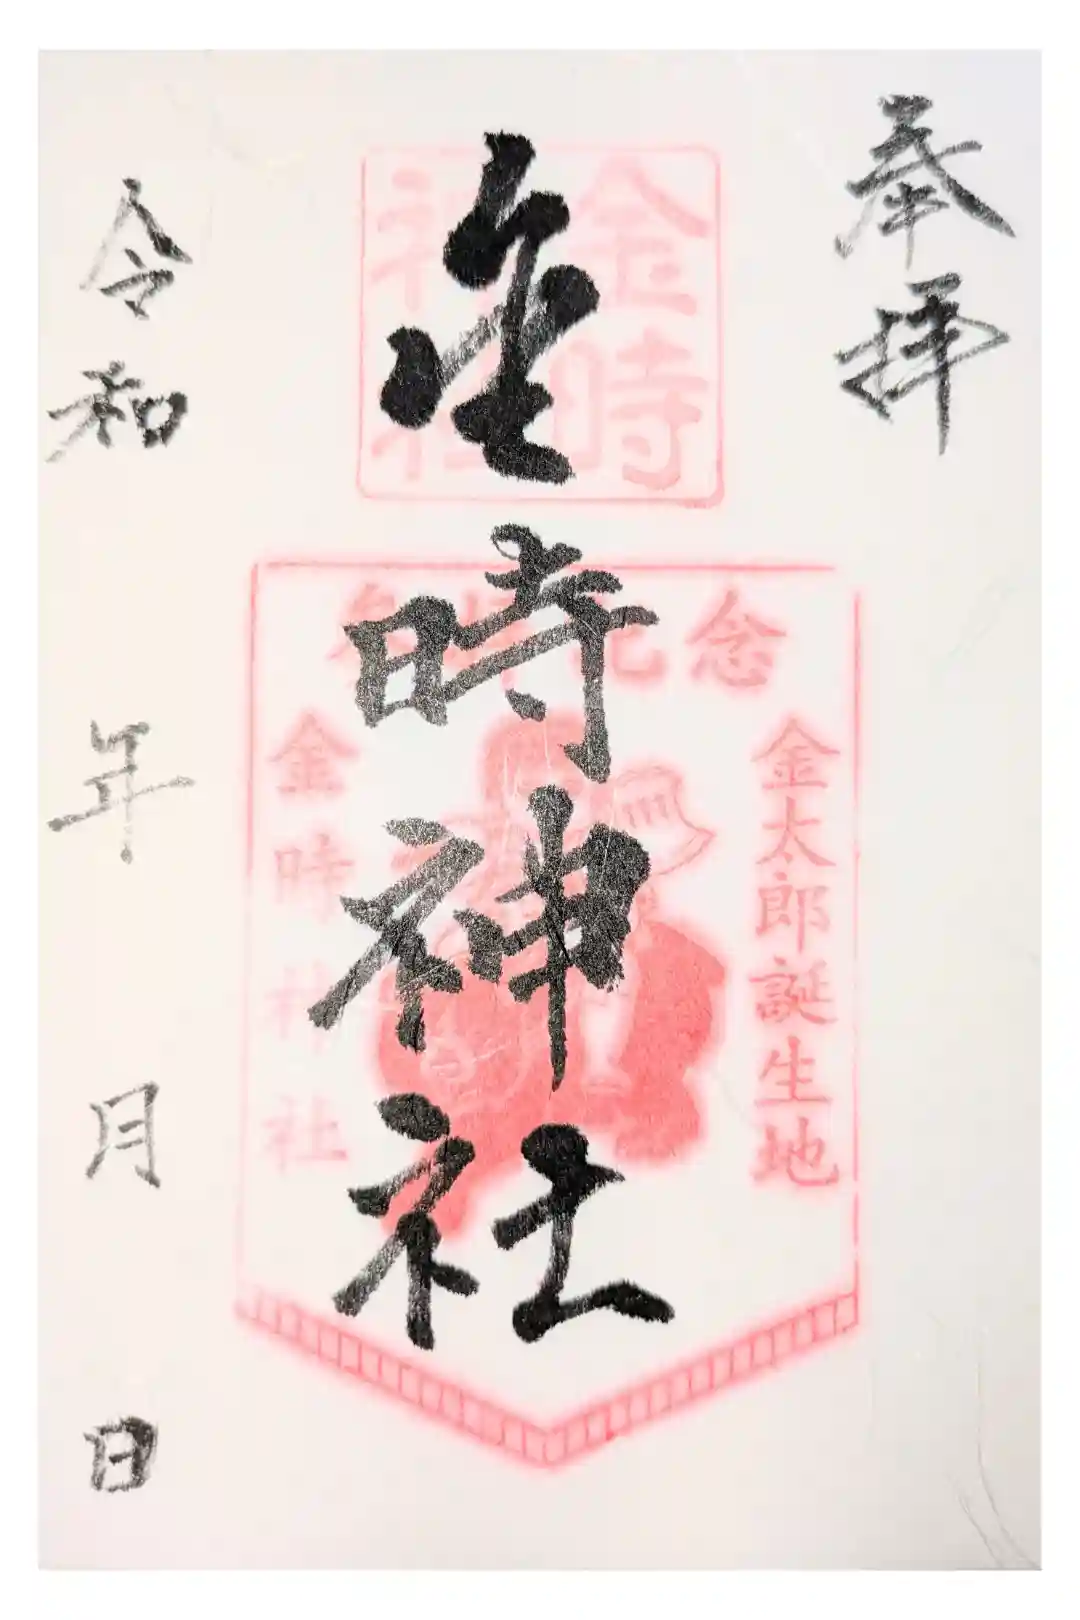 奉拝
金時神社
金時
神社
参拝記念
金太郎誕生地
金時神社
令和 年 月 日